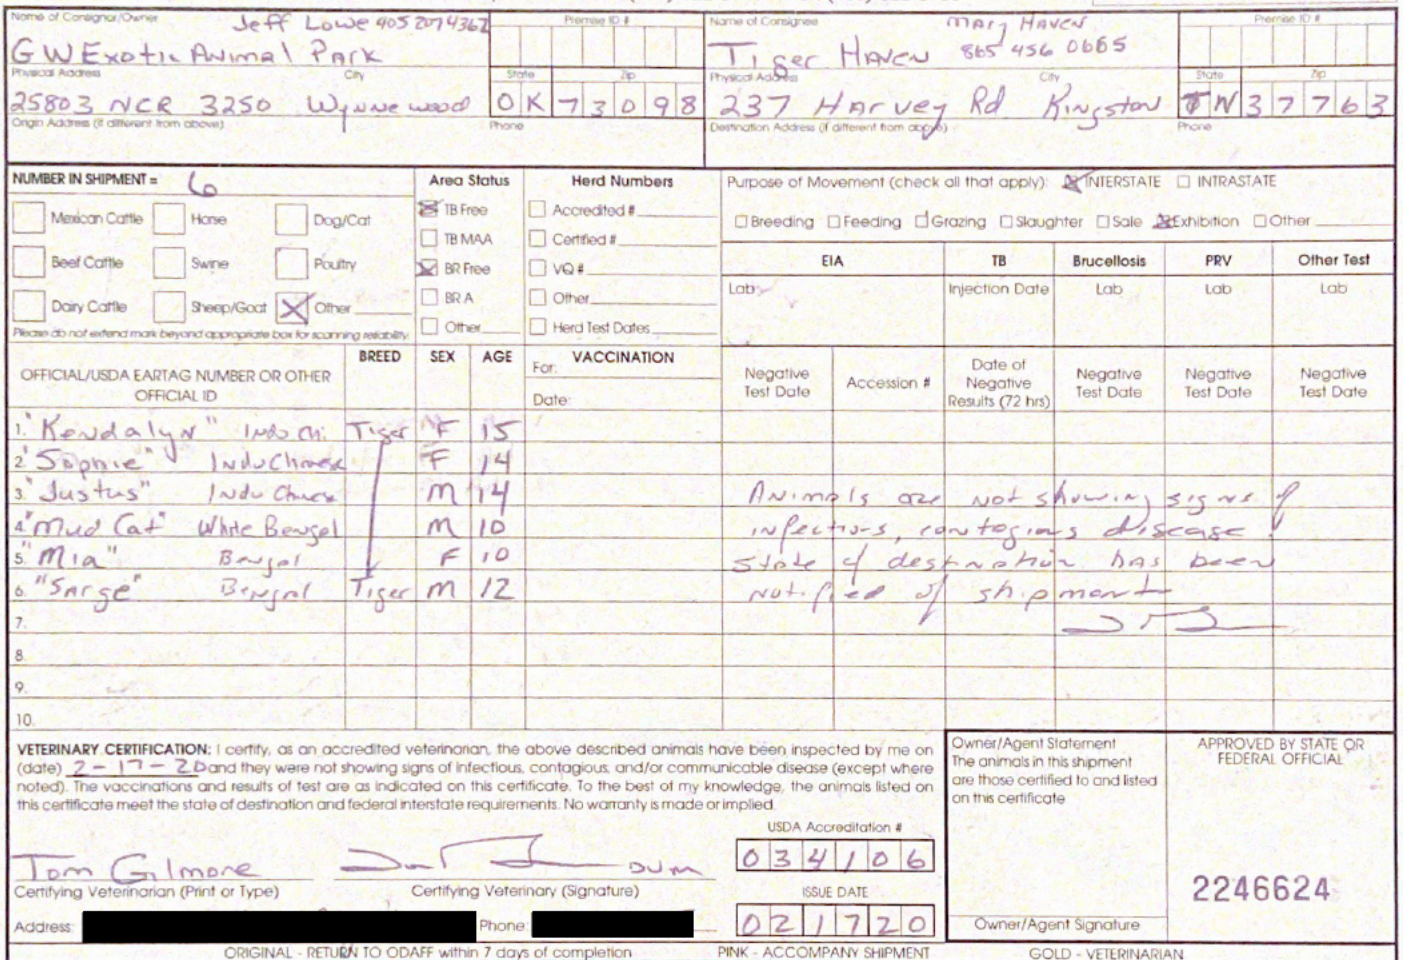 Name of Consignor/Owner Jeff Lowe 405 2074362 Premise ID #
GW Exotic Animal Park
Physical Address City State Zip
25803 NCR 3250 Wynnewood OK 73098
Origin Address (if different from above) Phone
Name of Consignee Mary Haven Premise ID #
Tiger Haven 865 456 0665
Physical Address City State Zip
237 Harvey Rd Kingston TN 37763
Destination Address (if different from above) Phone
NUMBER IN SHIPMENT = 6
Mexican Cattle Horse Dog/Cat
Beef Cattle Swine Poultry
Dairy Cattle Sheep/Goat Other
Please do not extend mark beyond appropriate box for scanning reliability.
Area Status
TB Free
TB MAA
BR Free
BR A
Other
Herd Numbers
Accredited #
Certified #
VQ #
Other
Herd Test Dates
Purpose of Movement (check all that apply): INTERSTATE INTRASTATE
Breeding Feeding Grazing Slaughter Sale Exhibition Other
EIA TB Brucellosis PRV Other Test
Lab: Injection Date Lab Lab Lab
OFFICIAL/USDA EARTAG NUMBER OR OTHER
OFFICIAL ID
BREED SEX AGE
VACCINATION
For:
Date:
Negative
Test Date
Accession #
Date of
Negative
Results (72 hrs)
Negative
Test Date
Negative
Test Date
Negative
Test Date
1. "Kendalyn" Indo Chi. Tiger F 15
2. "Sophie" Indu Chinese F 14
3. "Justus" Indu Chinese M 14
4. "Mud Cat" White Bengal M 10
5. "Mia" Bengal F 10
6. "Sarge" Bengal Tiger M 12
7.
8.
9.
10.
Animals are not showing signs of
infectious, contagious disease.
State of destination has been
notified of shipment
VETERINARY CERTIFICATION: I certify, as an accredited veterinarian, the above described animals have been inspected by me on
(date) 2-17-20 and they were not showing signs of infectious, contagious, and/or communicable disease (except where
noted). The vaccinations and results of test are as indicated on this certificate. To the best of my knowledge, the animals listed on
this certificate meet the state of destination and federal interstate requirements. No warranty is made or implied.
USDA Accreditation #
034106
Tom Gilmore DVM
Certifying Veterinarian (Print or Type) Certifying Veterinary (Signature)
ISSUE DATE
021720
Address: Phone:
Owner/Agent Statement
The animals in this shipment
are those certified to and listed
on this certificate
Owner/Agent Signature
APPROVED BY STATE OR
FEDERAL OFFICIAL
2246624
ORIGINAL - RETURN TO ODAFF within 7 days of completion PINK - ACCOMPANY SHIPMENT GOLD - VETERINARIAN